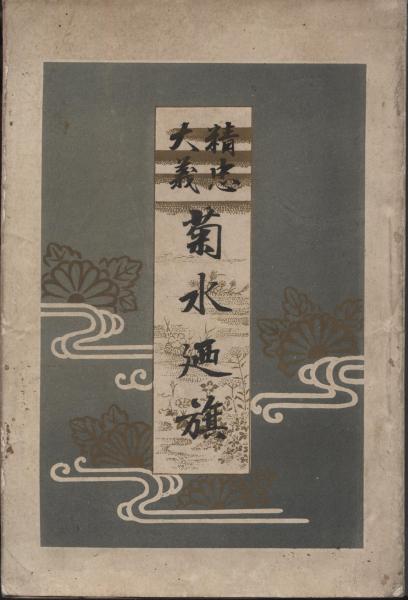 精忠
大義
菊水廼旗